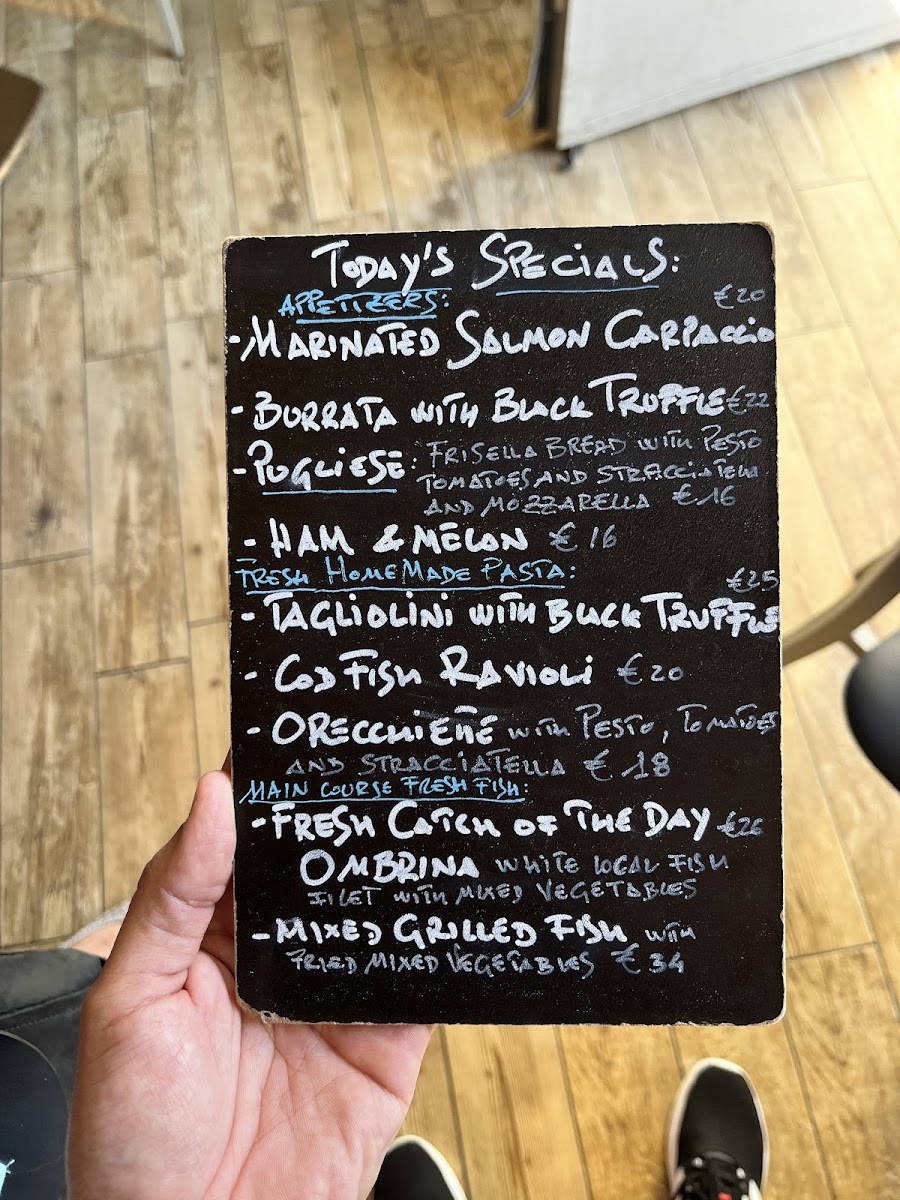 TODAY'S SPECIALS:
APPETIZERS:
€20
- MARINATED SALMON CARPACCIO
- BURRATA WITH BLACK TRUFFLE €22
- PUGLIESE: FRISELLA BREAD WITH PESTO
TOMATOES AND STRACCIATELLA
AND MOZZARELLA €16
- HAM & MELON €16
FRESH HOMEMADE PASTA:
€25
- TAGLIOLINI WITH BLACK TRUFFLE
- COD FISH RAVIOLI €20
- ORECCHIETTE WITH PESTO, TOMATOES
AND STRACCIATELLA €18
MAIN COURSE FRESH FISH:
- FRESH CATCH OF THE DAY €26
OMBRINA WHITE LOCAL FISH
FILET WITH MIXED VEGETABLES
- MIXED GRILLED FISH WITH
FRIED MIXED VEGETABLES €34